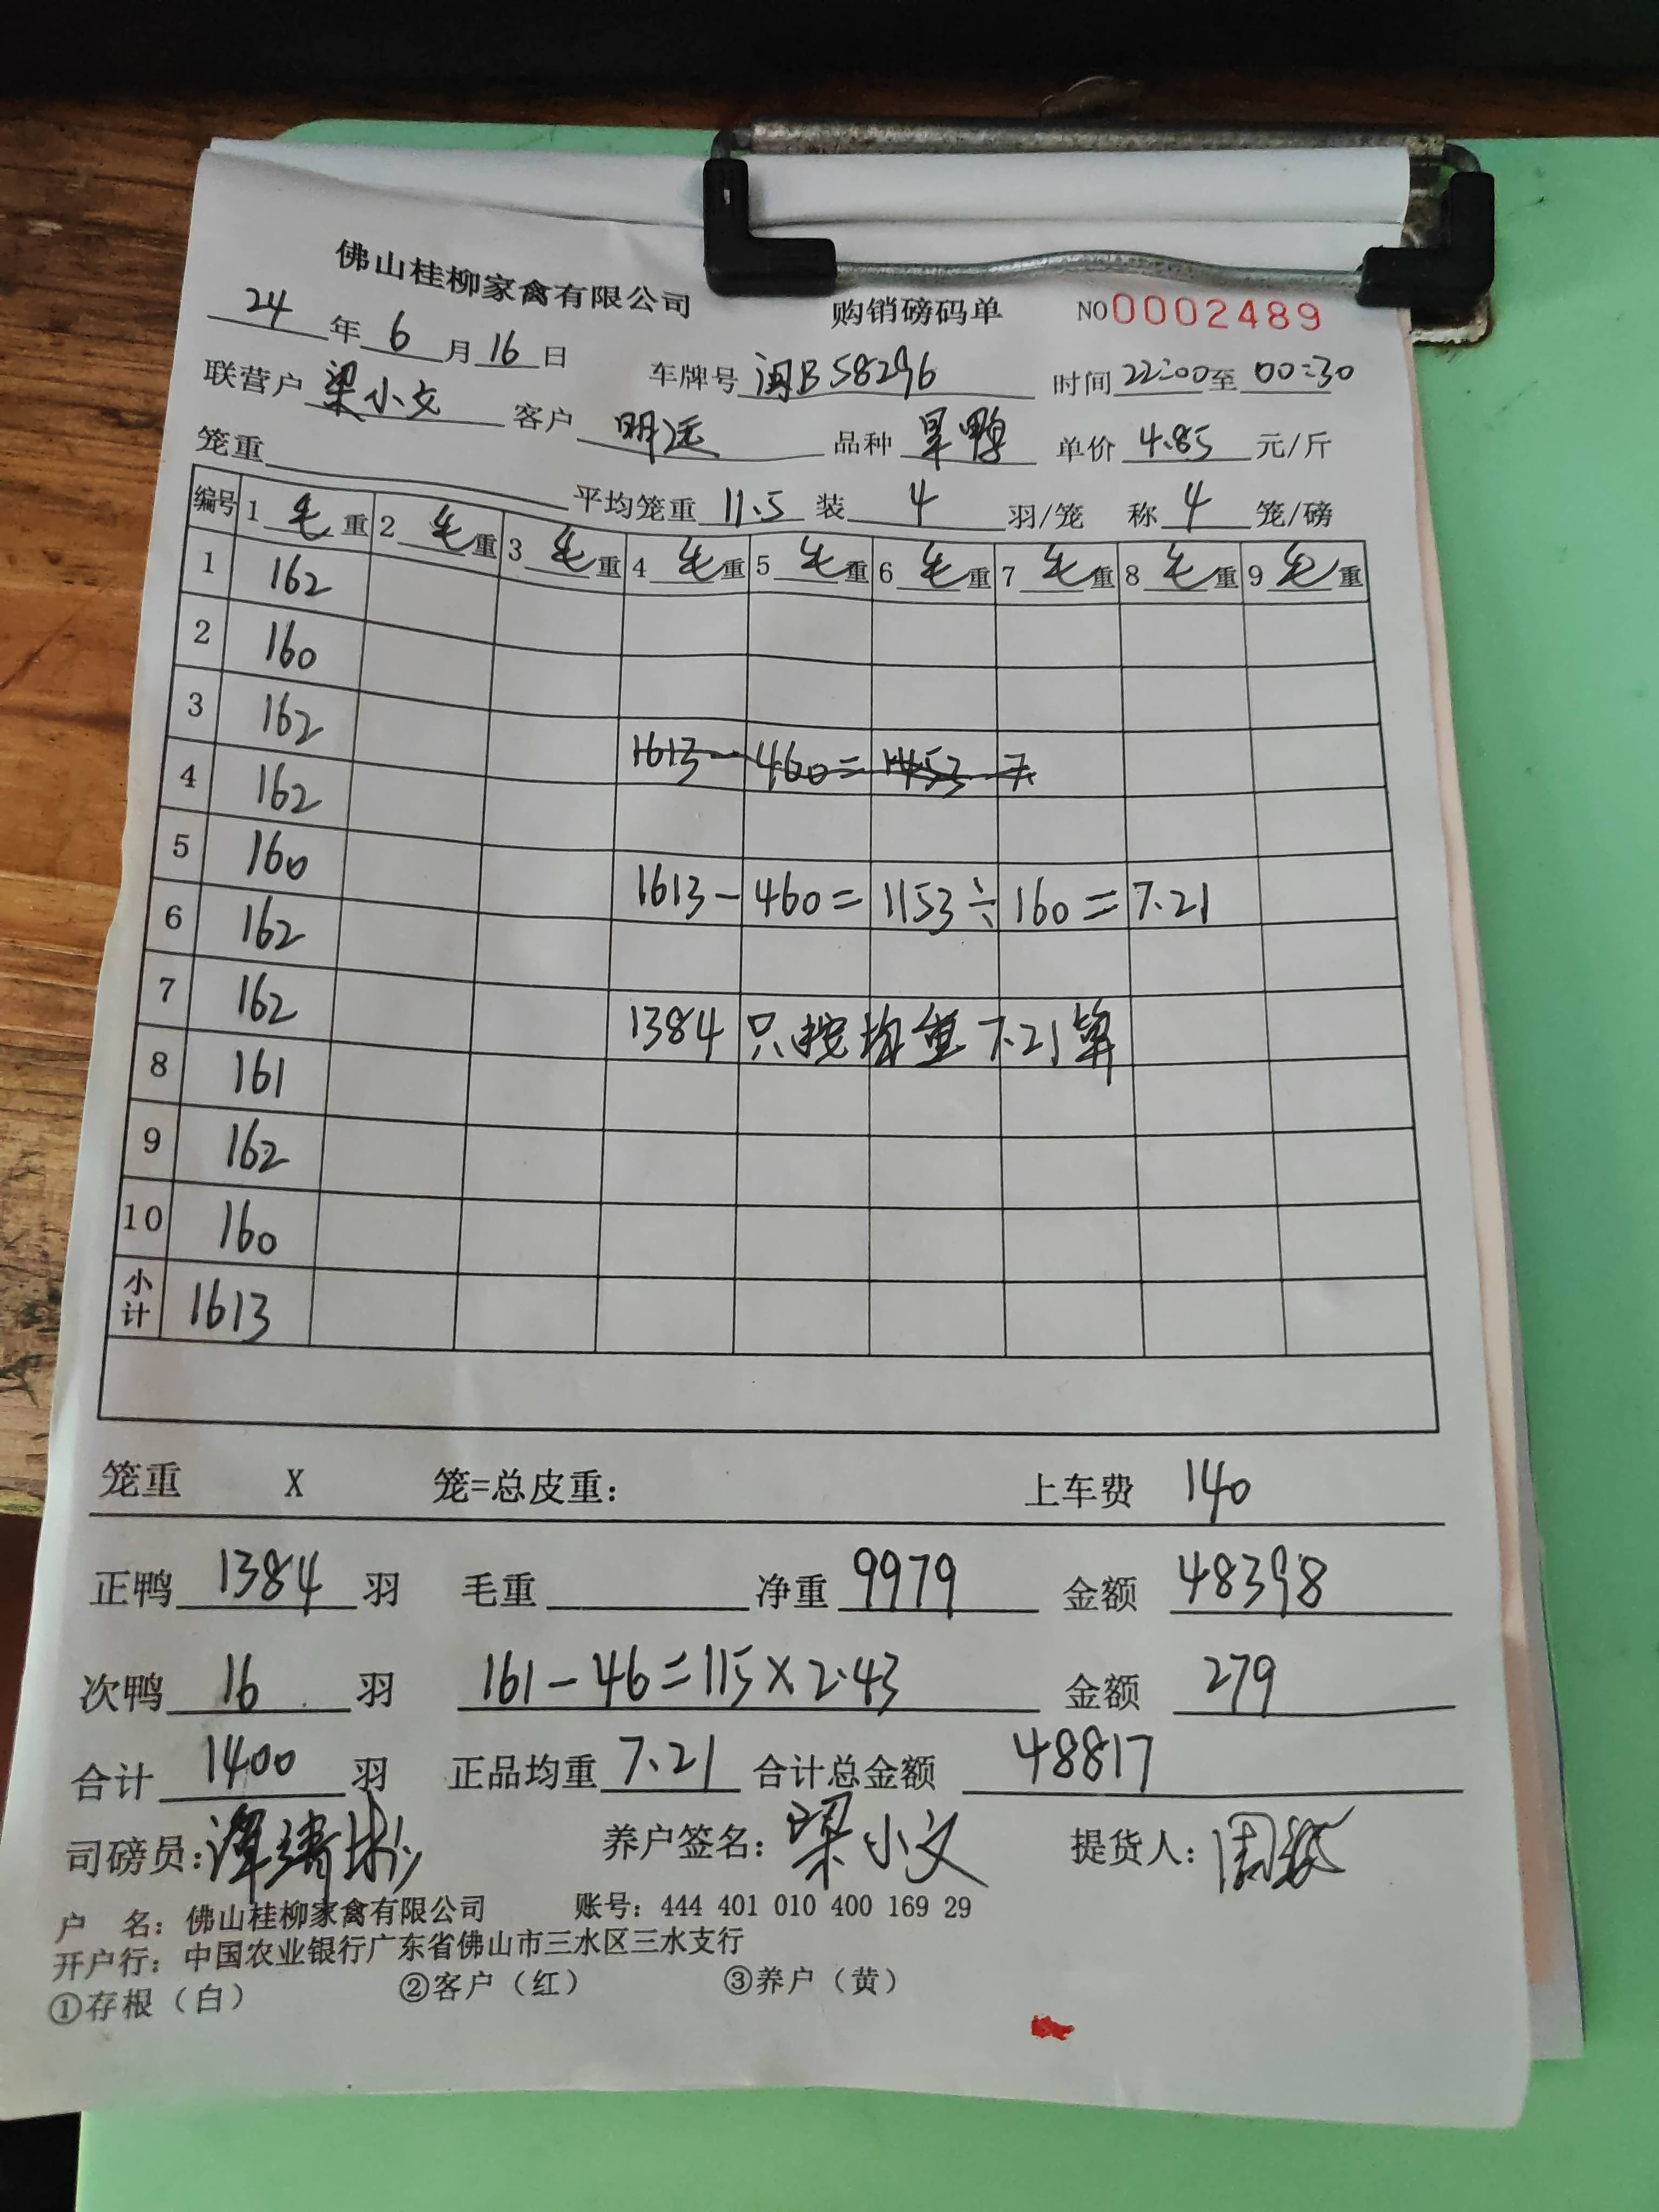 佛山桂柳家禽有限公司 购销磅码单 NO0002489
24年6月16日
联营户 梁小文 客户 明运 车牌号 闽B58296 时间 22:00至 00:30
品种 旱鸭 单价 4.85 元/斤
笼重 平均笼重 11.5 装 4 羽/笼 称 4 笼/磅
编号 1 毛重 2 毛重 3 毛重 4 毛重 5 毛重 6 毛重 7 毛重 8 毛重 9 毛重
1 162
2 160
3 162
1613-460=1453 7.
4 162
5 160
1613-460=1153÷160=7.21
6 162
7 162
1384只按均重7.21算
8 161
9 162
10 160
小计 1613
笼重 X 笼=总皮重: 上车费 140
正鸭 1384 羽 毛重 净重 9979 金额 48398
次鸭 16 羽 161-46=115×2.43 金额 279
合计 1400 羽 正品均重 7.21 合计总金额 48817
司磅员: 养户签名: 梁小文 提货人:
户 名: 佛山桂柳家禽有限公司 账号: 444 401 010 400 169 29
开户行: 中国农业银行广东省佛山市三水区三水支行
①存根（白） ②客户（红） ③养户（黄）